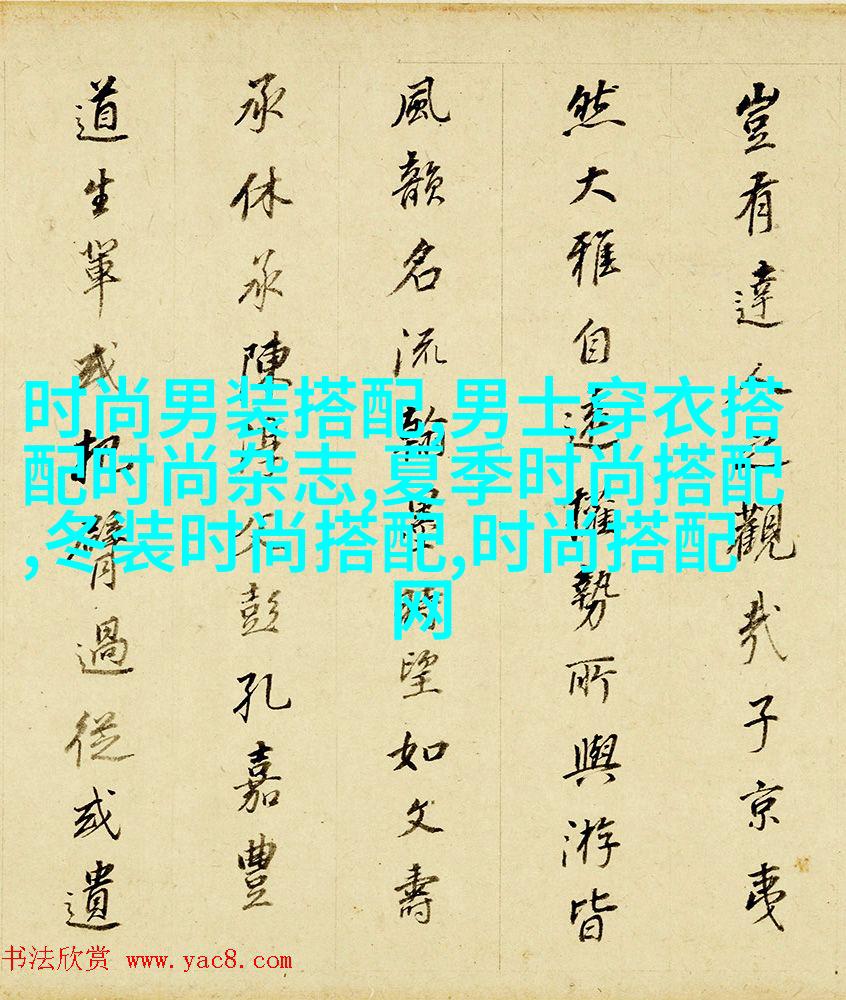 豈有達人之觀哉子京夷
然大雅自遠權勢所與游皆
風韻名流翰墨時望如文壽
承休承陳淳父彭孔嘉豐
道生輩或把臂過從或遺
时尚男装搭配,男士穿衣搭
配时尚杂志,夏季时尚搭配
,冬装时尚搭配,时尚搭配
网
书法欣赏 www.yac8.com